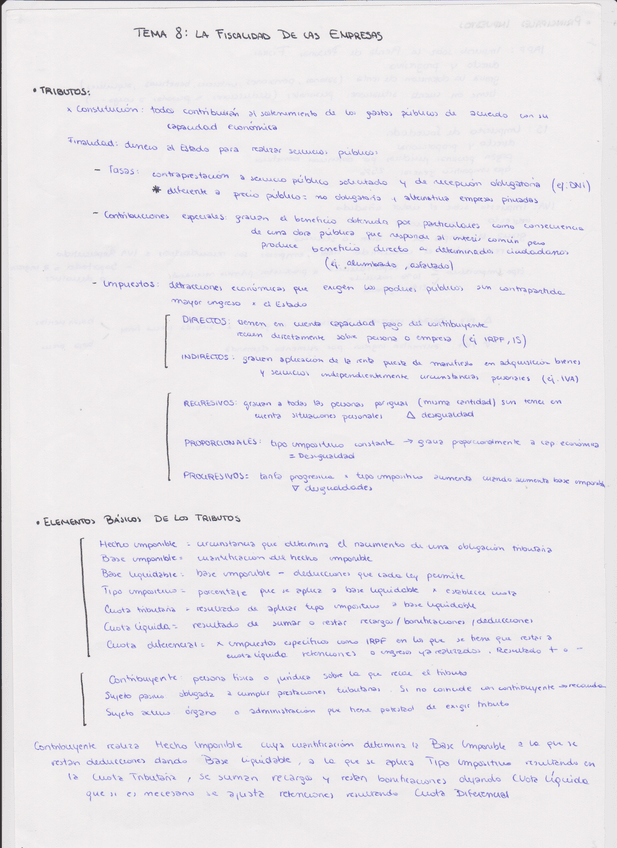 TEMA 8: LA FISCALIDAD DE LAS EMPRESAS
• TRIBUTOS:
x Constitución: todos contribuirán al sostenimiento de los gastos públicos de acuerdo con su
capacidad económica
Finalidad: dinero al Estado para realizar servicios públicos
- Tasas: contraprestación a servicio público solicitado y de recepción obligatoria (ej. DNI)
* diferente a precio público: no obligatorio y alternativa empresas privadas
- Contribuciones especiales: gravan el beneficio obtenido por particulares como consecuencia
de una obra pública que responde al interés común pero
produce beneficio directo a determinados ciudadanos
(ej. alumbrado, asfaltado)
- Impuestos: detracciones económicas que exigen los poderes públicos sin contrapartida
mayor ingreso x el Estado
DIRECTOS: tienen en cuenta capacidad pago del contribuyente
recaen directamente sobre persona o empresa (ej IRPF, IS)
INDIRECTOS: gravan aplicación de la renta puesta de manifiesto en adquisición bienes
y servicios independientemente circunstancias personales (ej. IVA)
REGRESIVOS: gravan a todas las personas por igual (misma cantidad) sin tener en
cuenta situaciones personales Δ desigualdad
PROPORCIONALES: tipo impositivo constante → grava proporcionalmente a cap económica
= Desigualdad
PROGRESIVOS: tarifa progresiva x tipo impositivo aumenta cuando aumenta base imponible
∇ desigualdades
• ELEMENTOS BÁSICOS DE LOS TRIBUTOS
Hecho imponible = circunstancia que determina el nacimiento de una obligación tributaria
Base imponible = cuantificación del hecho imponible
Base liquidable: base imponible - deducciones que cada ley permite
Tipo impositivo = porcentaje que se aplica a base liquidable x establecer cuota
Cuota tributaria = resultado de aplicar tipo impositivo a base liquidable
Cuota líquida = resultado de sumar o restar recargos/bonificaciones/deducciones
Cuota diferencial = x impuestos específicos como IRPF en los que se tiene que restar a
cuota líquida retenciones o ingresos ya realizados. Resultado + o -
Contribuyente persona física o jurídica sobre la que recae el tributo
Sujeto pasivo obligada a cumplir prestaciones tributarias. Si no coincide con contribuyente
Sujeto activo órgano o administración que tiene potestad de exigir tributo
Contribuyente realiza Hecho Imponible cuya cuantificación determina la Base Imponible a la que se
restan deducciones dando Base Liquidable, a la que se aplica Tipo Impositivo resultando en
la Cuota Tributaria, se suman recargos y restan bonificaciones dejando Cuota Líquida
que si es necesario se ajusta retenciones resultando Cuota Diferencial